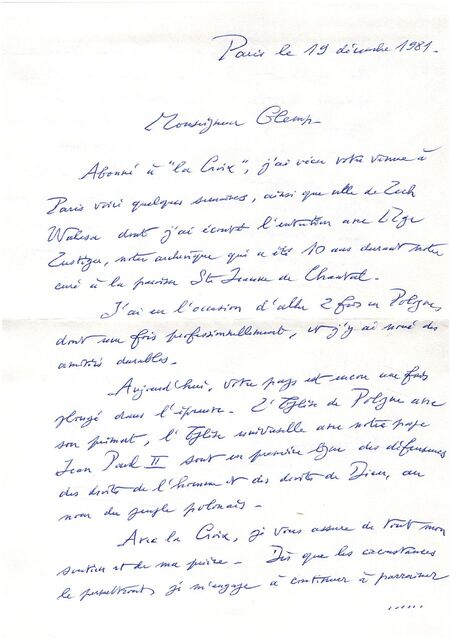 Paris le 19 décembre 1981.
Monseigneur Glemp.
Abonné à "la Croix", j'ai vécu votre venue à
Paris voici quelques semaines, ainsi que celle de Lech
Walesa dont j'ai écouté l'entretien avec Mgr
Lustiger, notre archevêque qui a été 10 ans durant notre
curé à la paroisse Ste Jeanne de Chantal.
J'ai eu l'occasion d'aller 2 fois en Pologne
dont une fois professionnellement, et j'y ai noué des
amitiés durables.
Aujourd'hui, votre pays est encore une fois
plongé dans l'épreuve. L'Eglise de Pologne avec
son primat, l'Eglise universelle avec notre pape
Jean Paul II sont en première ligne des défenseurs
des droits de l'homme et des droits de Dieu, au
nom du peuple polonais.
Avec la Croix, je vous assure de tout mon
soutien et de ma prière. Dès que les circonstances
le permettront, je m'engage à continuer à parrainer
......